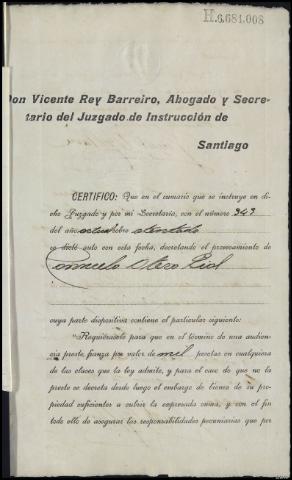 H.6.684.008
Don Vicente Rey Barreiro, Abogado y Secre-
tario del Juzgado de Instrucción de
Santiago
CERTIFICO: Que en el sumario que se instruye en di-
cho Juzgado y por mi Secretaría, con el número 349
del año sobre atentado
se dictó auto con esta fecha, decretando el procesamiento de
Consuelo Otero
cuya parte dispositiva contiene el particular siguiente:
Requiérasele para que en el término de una audien-
cia preste fianza por valor de mil pesetas en cualquiera
de las clases que la ley admite, y para el caso de que no la
preste se decreta desde luego el embargo de bienes de su pro-
piedad suficientes a cubrir la expresada suma, y con el fin
todo ello de asegurar las responsabilidades pecuniarias que por